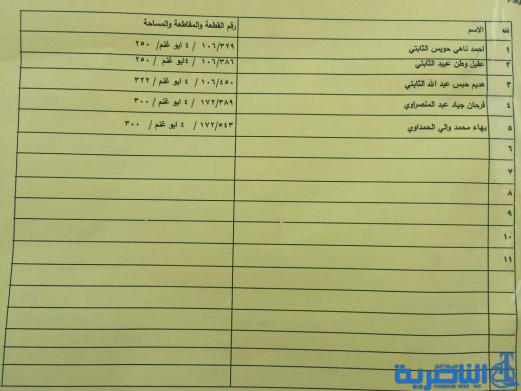 Pag
ت الاسم رقم القطعة والمقاطعة والمساحة
١ احمد ناهي حويس الثابتي ١٠٦/٣٢٩ / ٤ ابو غنم/ ٢٥٠
٢ عقيل وطن عبيد الثابتي ١٠٦/٣٨٦ / ٤ابو غنم/ ٢٥٠
٣ هديم حبس عبد الله الثابتي ١٠٦/٤٥٠ / ٤ ابو غنم/ ٣٢٢
٤ فرحان جياد عبد المنصراوي ١٧٢/٣٨٩ / ٤ ابو غنم/ ٣٠٠
٥ بهاء محمد والي الحمداوي ١٧٢/٥٤٣ / ٤ ابو غنم/ ٣٠٠
٦
٧
٨
٩
١٠
١١
الناصرية